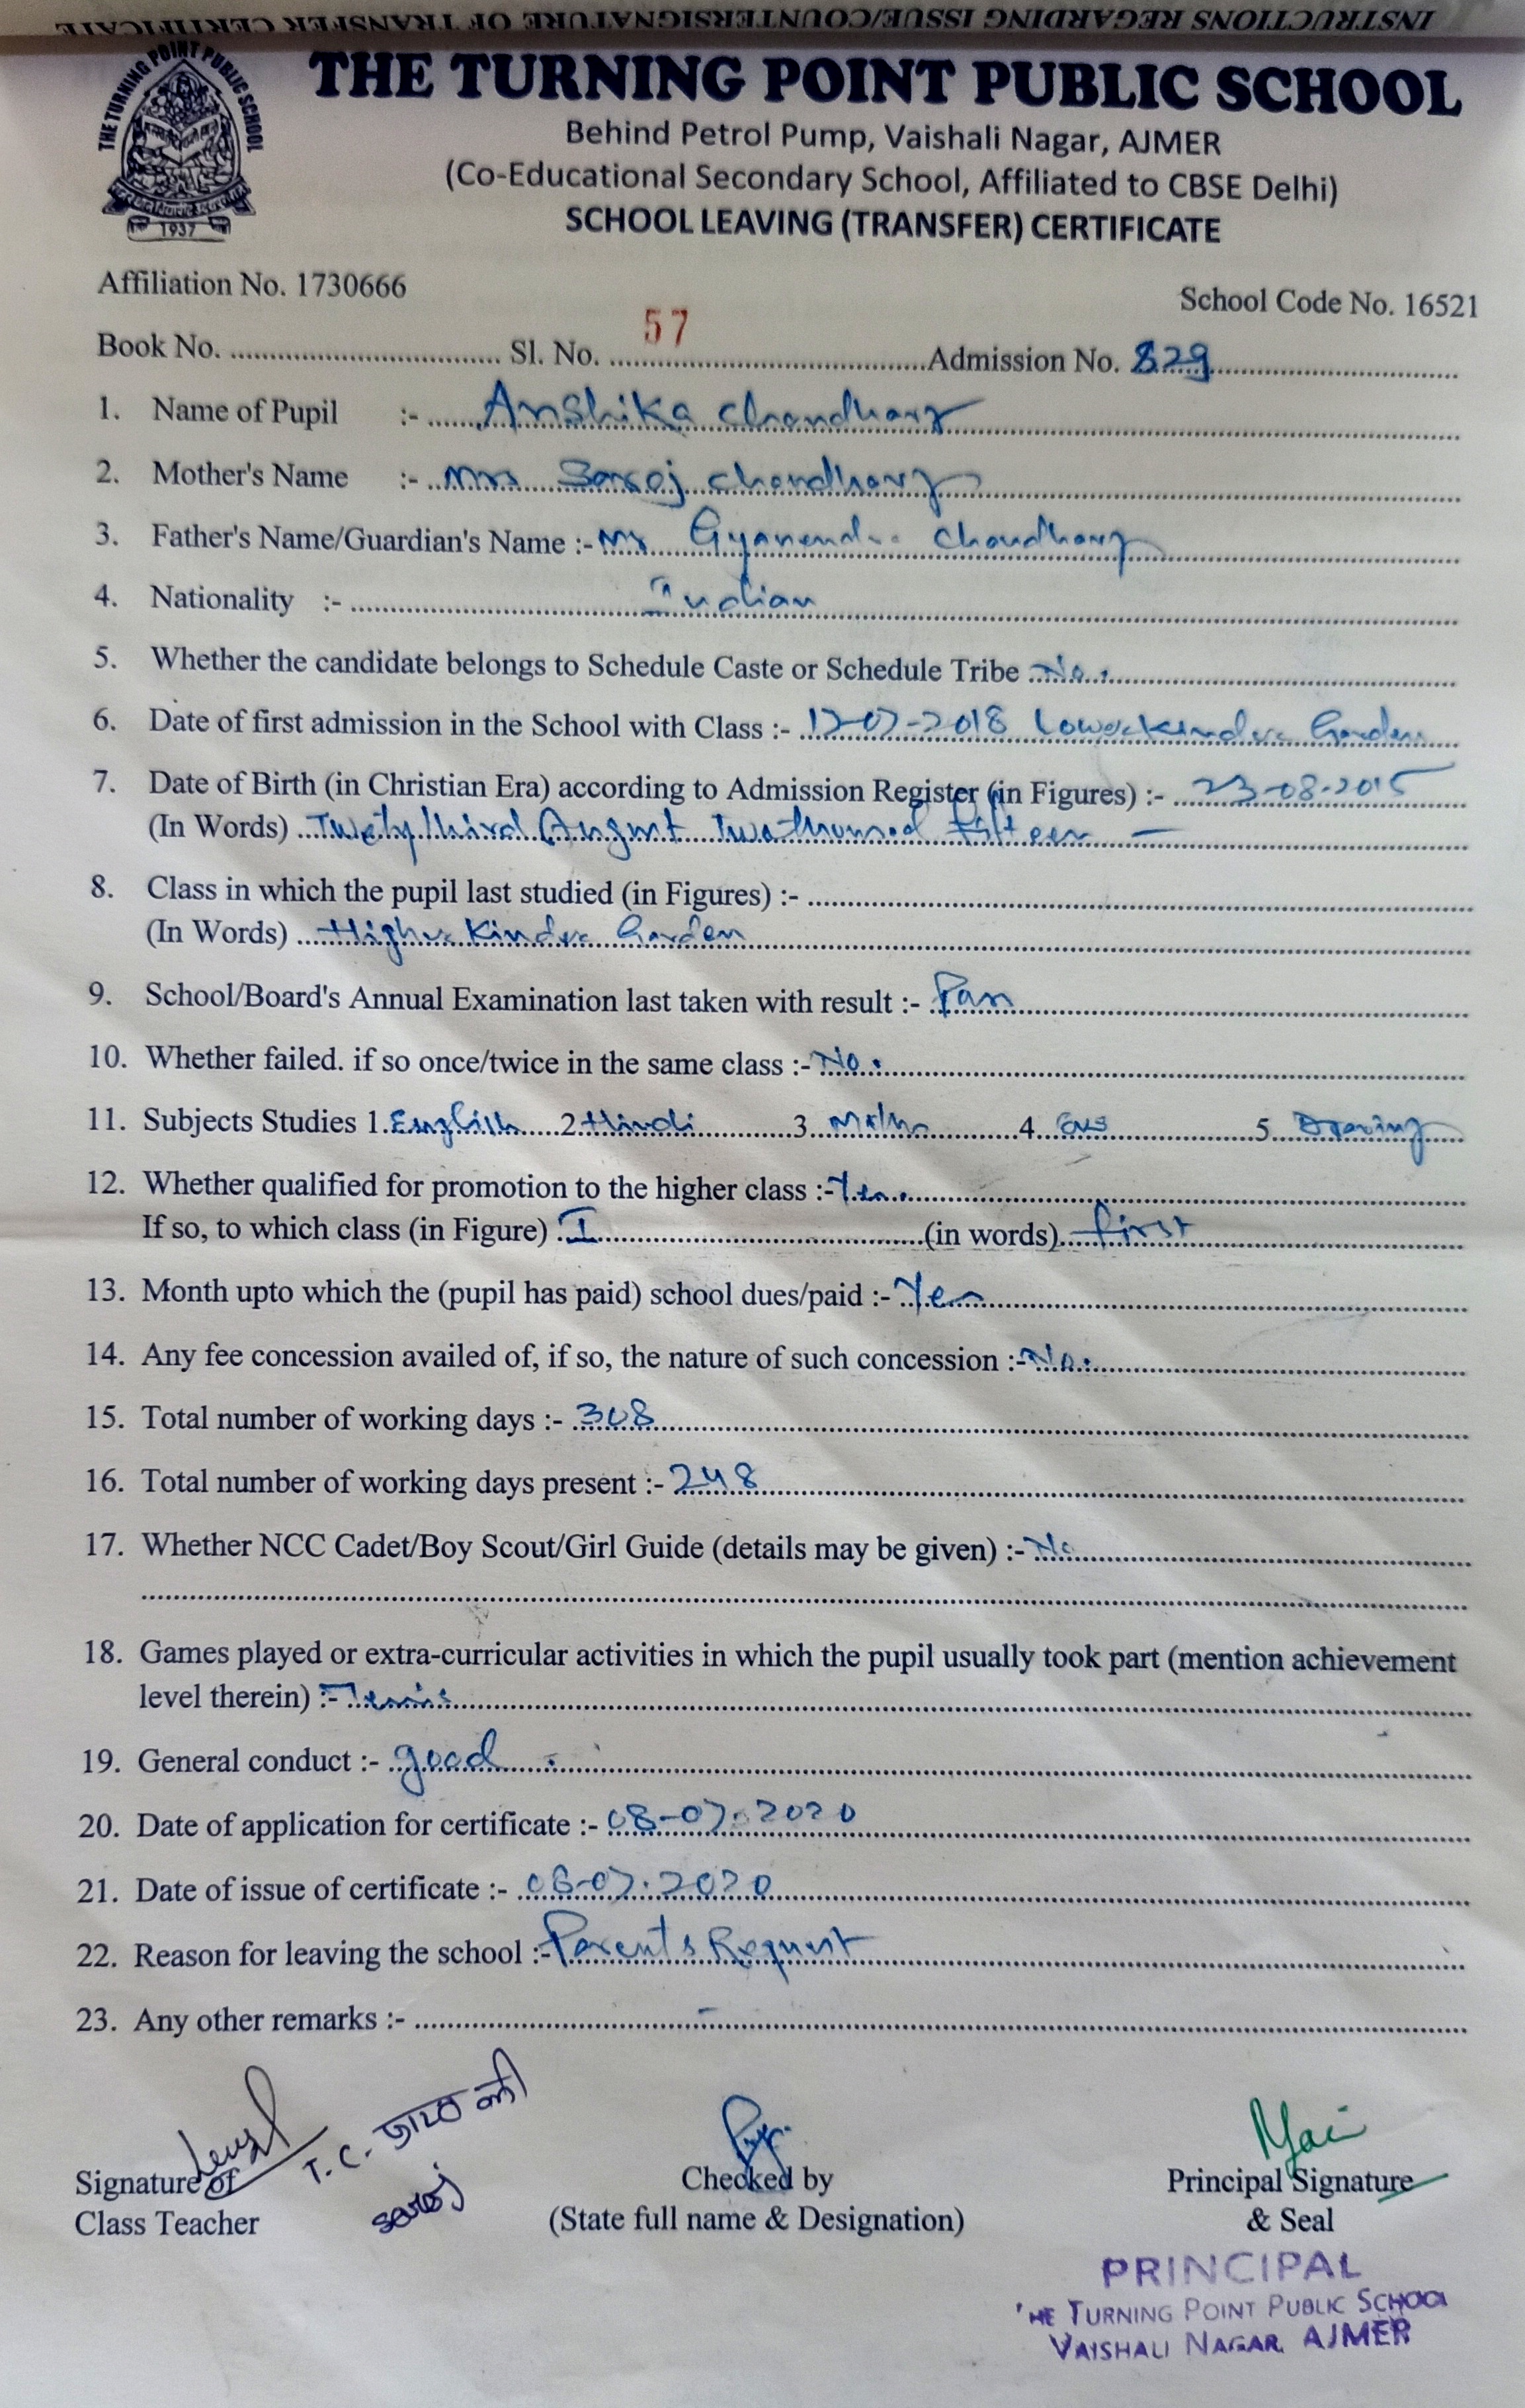 INSTRUCTIONS REGARDING ISSUE/COUNTERSIGNATURE OF TRANSFER CERTIFICATE
THE TURNING POINT PUBLIC SCHOOL
1937
THE TURNING POINT PUBLIC SCHOOL
Behind Petrol Pump, Vaishali Nagar, AJMER
(Co-Educational Secondary School, Affiliated to CBSE Delhi)
SCHOOL LEAVING (TRANSFER) CERTIFICATE
Affiliation No. 1730666 School Code No. 16521
Book No. Sl. No. 57 Admission No. 829
1. Name of Pupil :- Anshika Choudhary
2. Mother's Name :- Mrs Saroj Choudhary
3. Father's Name/Guardian's Name :- Mr Gyanendra Choudhary
4. Nationality :- Indian
5. Whether the candidate belongs to Schedule Caste or Schedule Tribe No.
6. Date of first admission in the School with Class :- 17-07-2018 Lower Kinder Garden
7. Date of Birth (in Christian Era) according to Admission Register (in Figures) :- 23-08-2015
(In Words) Twenty third August Two thousand Fifteen
8. Class in which the pupil last studied (in Figures) :-
(In Words) Higher Kinder Garden
9. School/Board's Annual Examination last taken with result :- Pass
10. Whether failed. if so once/twice in the same class :- No.
11. Subjects Studies 1. English 2. Hindi 3. Maths 4. EVS 5. Drawing
12. Whether qualified for promotion to the higher class :- Yes.
If so, to which class (in Figure) I (in words) first
13. Month upto which the (pupil has paid) school dues/paid :- Yes
14. Any fee concession availed of, if so, the nature of such concession :- No.
15. Total number of working days :- 308
16. Total number of working days present :- 248
17. Whether NCC Cadet/Boy Scout/Girl Guide (details may be given) :- No
18. Games played or extra-curricular activities in which the pupil usually took part (mention achievement
level therein) :- Tennis
19. General conduct :- good.
20. Date of application for certificate :- 08-07-2020
21. Date of issue of certificate :- 08-07-2020
22. Reason for leaving the school :- Parents Request
23. Any other remarks :- -
T.C. प्राप्त की
Saroj
Signature of Checked by Principal Signature
Class Teacher (State full name & Designation) & Seal
PRINCIPAL
THE TURNING POINT PUBLIC SCHOOL
VAISHALI NAGAR, AJMER